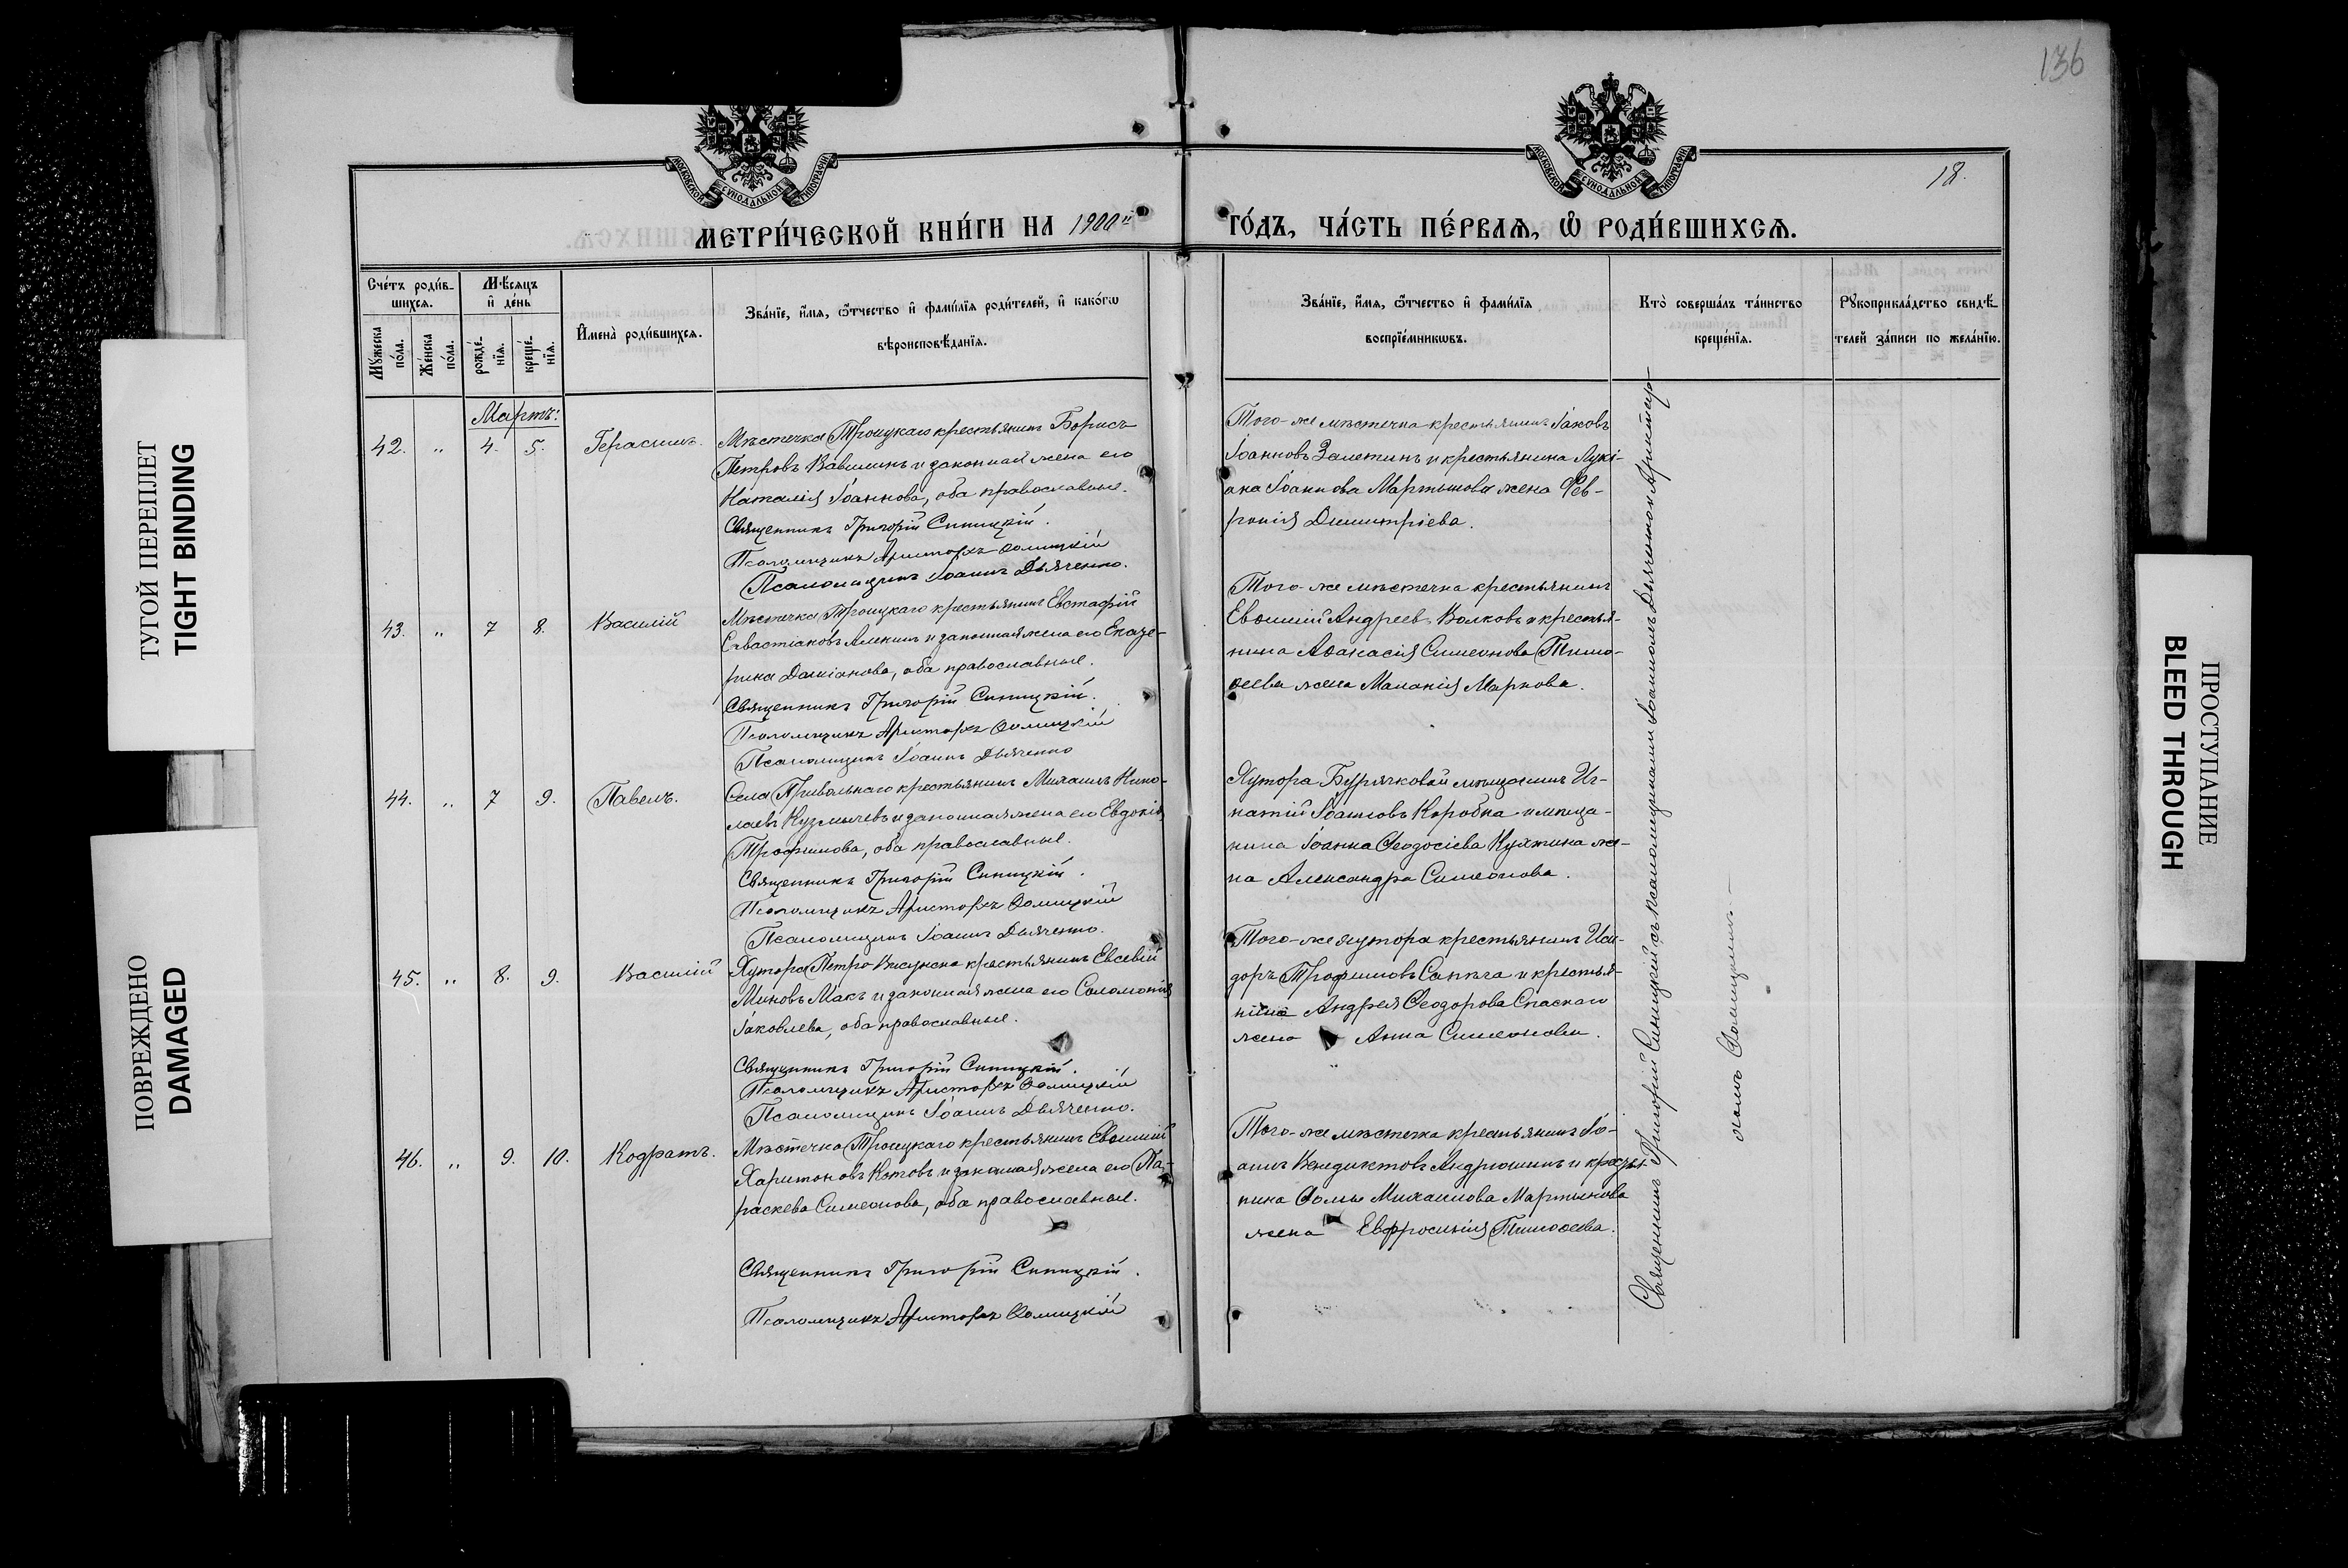 136
18.
МОСКОВСКОЙ СѴНОДАЛЬНОЙ ТИПОГРАФІИ
МОСКОВСКОЙ СѴНОДАЛЬНОЙ ТИПОГРАФІИ
МЕТРИ́ЧЕСКОЙ КНИ́ГИ НА 1900й ГО́ДЪ, ЧА́СТЬ ПЕ́РВАѦ, Ѡ҆ РОДИ́ВШИХСѦ.
Сче́тъ роди́в-
шихсѧ.
Мꙋ́жеска по́ла.
Же́нска по́ла.
Мѣ́сѧцъ
и҆ де́нь
рожде́-
нїѧ.
креще́-
нїѧ.
И҆мена̀ роди́вшихсѧ.
Зва́нїе, и҆́мѧ, ѻ҆́тчество и҆ фами́лїѧ роди́телей, и҆ како́гѡ
вѣроисповѣ́данїѧ.
Зва́нїе, и҆́мѧ, ѻ҆́тчество и҆ фами́лїѧ
воспрїе́мникѡвъ.
Кто̀ соверша́лъ та́инство
креще́нїѧ.
Рꙋкоприкла́дство свидѣ́-
телей за́писи по жела́нїю.
Мартъ:
42. " 4. 5. Герасимъ.
Мѣстечка Троицкаго крестьянинъ Борисъ
Петровъ Вавилинъ и законная жена его
Наталія Іоаннова, оба православные.
Священникъ Григорій Синицкій.
Псаломщикъ Аристархъ Ѳомицкій
Псаломщикъ Іоаннъ Дьяченко.
Того-же мѣстечка крестьянинъ Іаковъ
Іоанновъ Залетинъ и крестьянина Лукі-
ана Іоаннова Мартынова жена Фев-
ронія Димитріева.
43. " 7 8. Василій
Мѣстечка Троицкаго крестьянинъ Евстафій
Севастіановъ Алекинъ и законная жена его Екате-
рина Даміанова, оба православные.
Священникъ Григорій Синицкій.
Псаломщикъ Аристархъ Ѳомицкій
Псаломщикъ Іоаннъ Дьяченко
Того-же мѣстечка крестьянинъ
Евѳимій Андреевъ Волковъ и крестья-
нина Аѳанасія Симеонова Тимо-
ѳеева жена Маланія Маркова.
44. " 7 9. Павелъ.
Села Привольнаго крестьянинъ Михаилъ Нико-
лаевъ Кузмичевъ и законная жена его Евдокія
Трофимова, оба православные.
Священникъ Григорій Синицкій.
Псаломщикъ Аристархъ Ѳомицкій
Псаломщикъ Іоаннъ Дьяченко.
Хутора Бурячковой мѣщанинъ Иг-
натій Іоанновъ Коробка и мѣща-
нина Іоанна Ѳеодосіева Кухтина же-
на Александра Симеонова.
45. " 8. 9. Василій
Хутора Петро-Висунска крестьянинъ Евсевій
Миновъ Макъ и законная жена его Соломонія
Іаковлева, оба православные.
Священникъ Григорій Синицкій.
Псаломщикъ Аристархъ Ѳомицкій
Псаломщикъ Іоаннъ Дьяченко.
Того-же хутора крестьянинъ Иси-
доръ Трофимовъ Сапѣга и крестья-
нина Андрея Ѳеодорова Спаскаго
жена Анна Симеонова.
46. " 9. 10. Кодратъ.
Мѣстечка Троицкаго крестьянинъ Евѳимій
Харитоновъ Котовъ и законная жена его Па-
раскева Симеонова, оба православные.
Священникъ Григорій Синицкій.
Псаломщикъ Аристархъ Ѳомицкій
Того-же мѣстечка крестьянинъ Іо-
аннъ Венедиктовъ Андрюшинъ и кресть-
нина Ѳомы Михаилова Мартынова
жена Евфросинія Тимоѳеева.
Священникъ Григорій Синицкій съ псаломщиками Іоанномъ Дьяченкомъ и Аристар-
хомъ Ѳомицкимъ
ТУГОЙ ПЕРЕПЛЕТ
TIGHT BINDING
ПОВРЕЖДЕНО
DAMAGED
ПРОСТУПАНИЕ
BLEED THROUGH